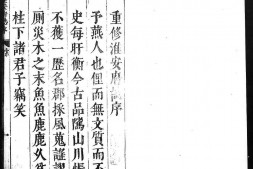 重修淮安府誌序
予燕人也俚而無文質而不
史每肝衡今古品隲山川恨
不獲一歷名郡採風蒐謠謬
厠災木之末魚魚鹿鹿久為
柱下諸君子竊笑